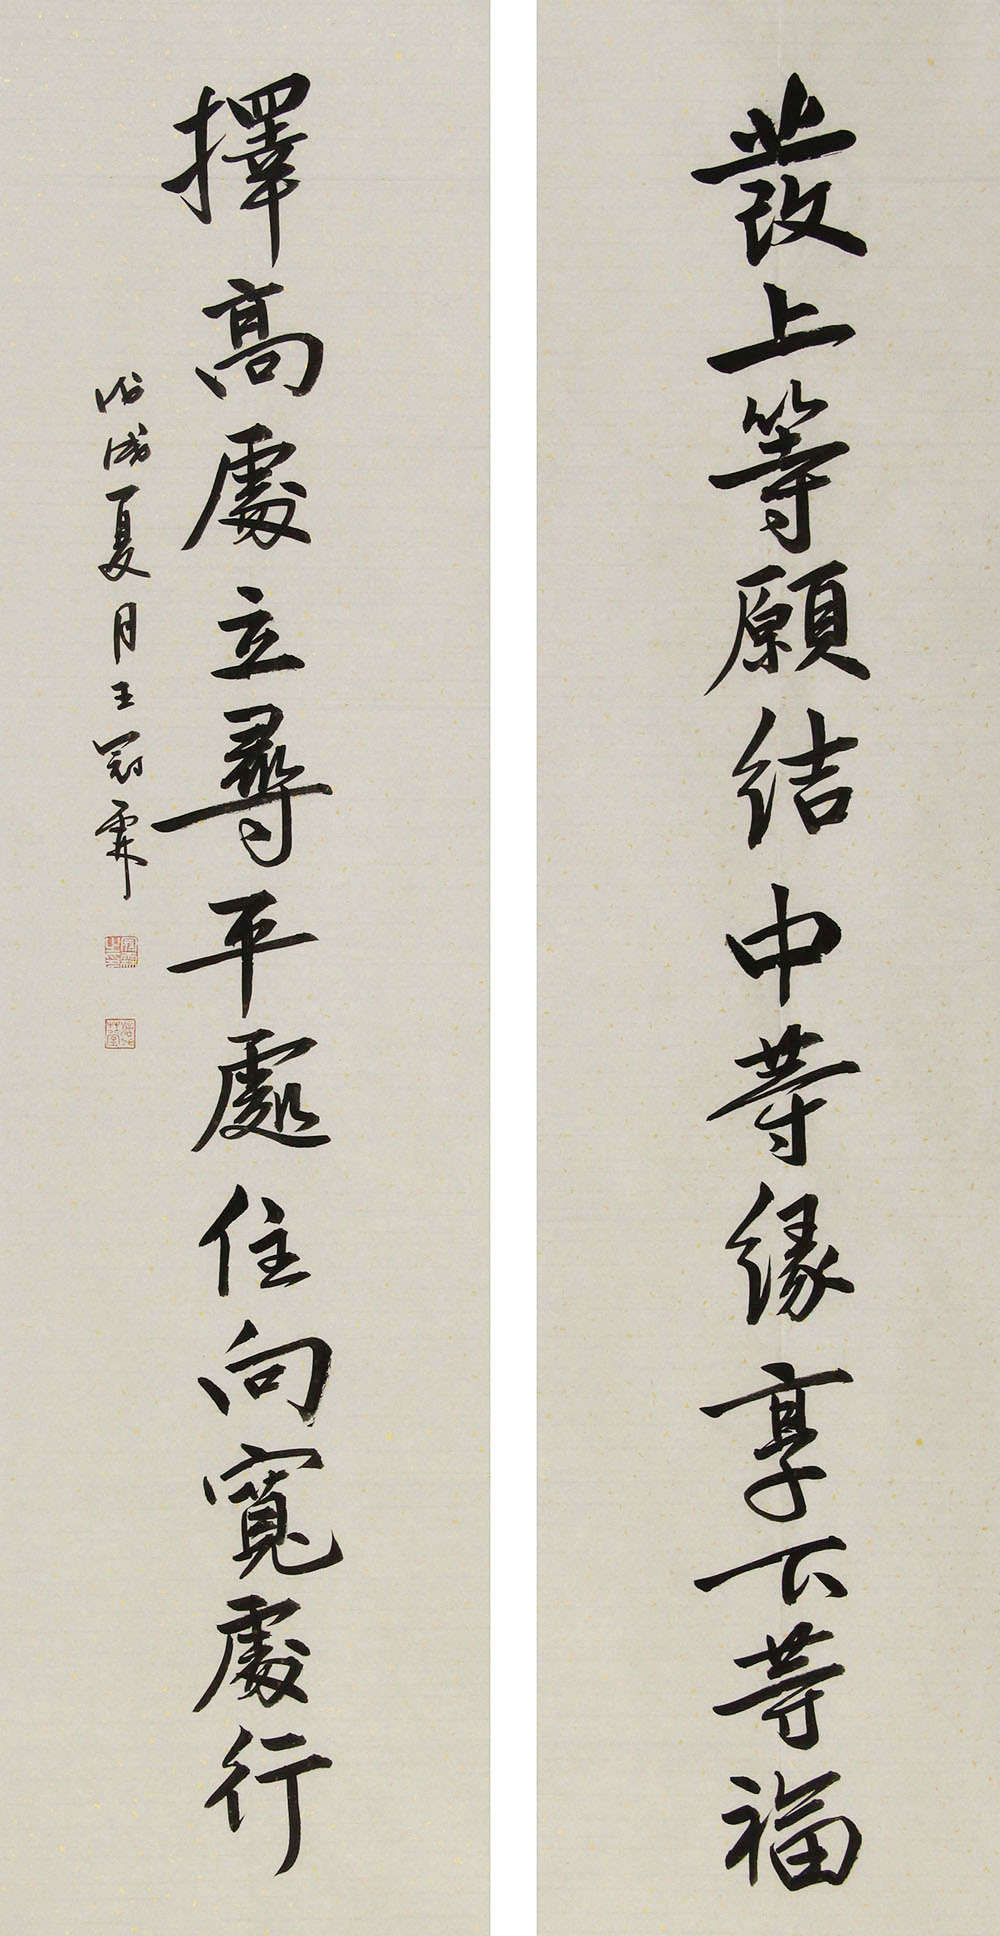 發上等願結中等緣享下等福
擇高處立尋平處住向寬處行
戊戌夏月王冠霖